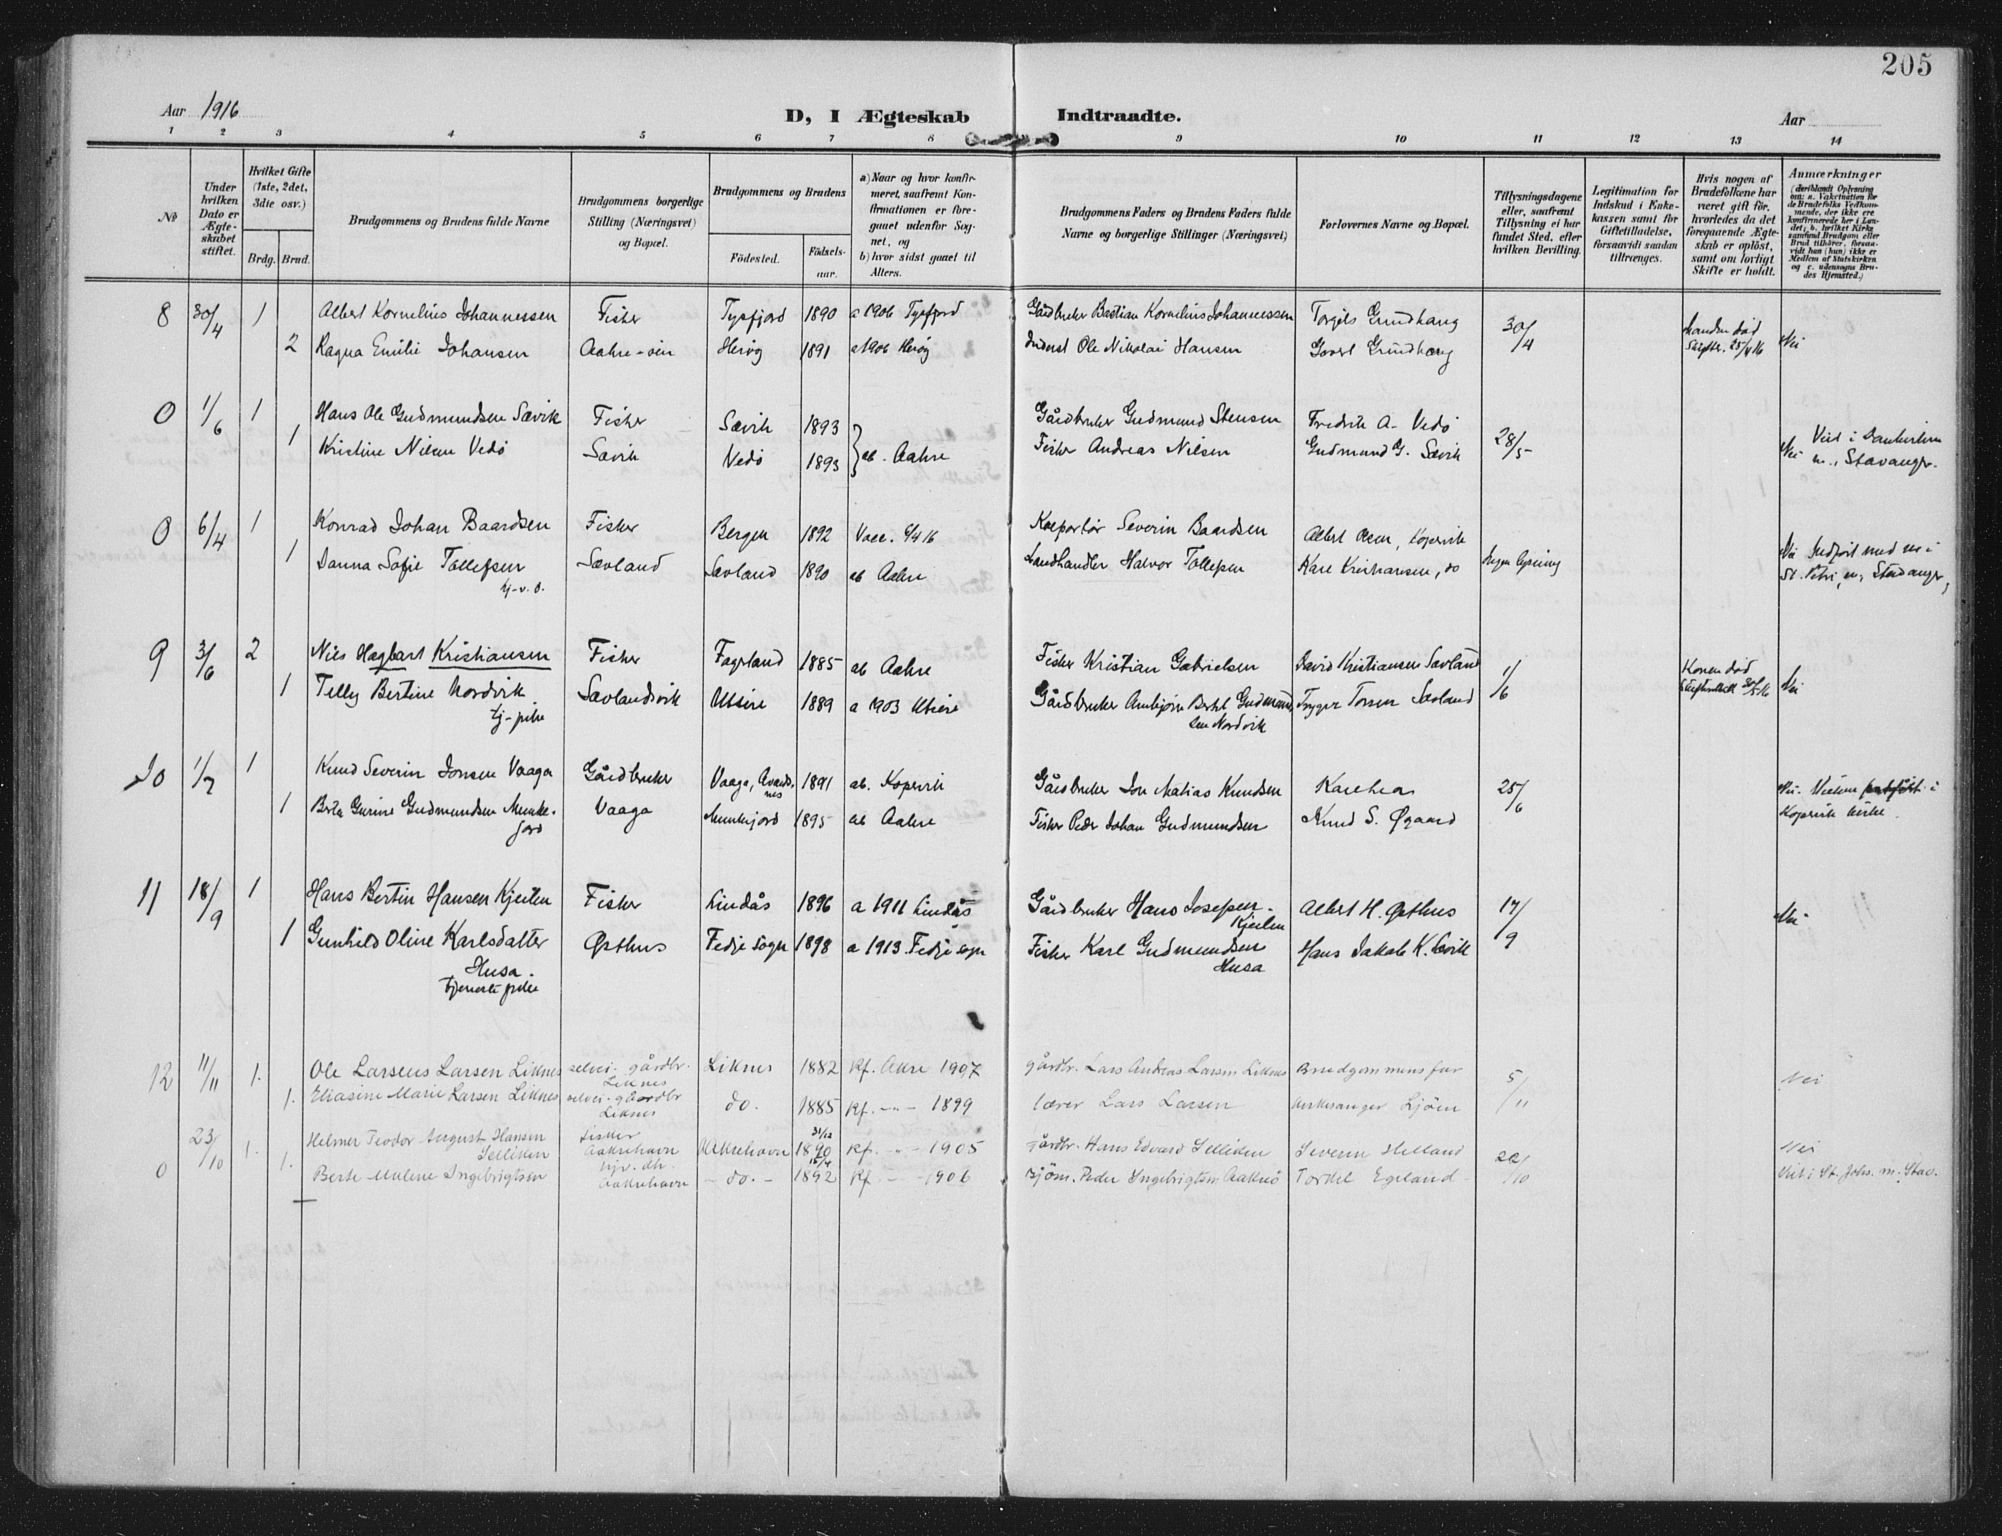 205
Aar 1916
D, I Ægteskab Indtraadte.
Aar
1 2 3 4 5 6 7 8 9 10 11 12 13 14
No
Under hvilken Dato er Ægteskabet stiftet.
Hvilket Gifte (1ste, 2det, 3die osv.)
Brdg. Brud.
Brudgommens og Brudens fulde Navne
Brudgommens borgerlige Stilling (Næringsvei) og Bopæl.
Brudgommens og Brudens
Fødested. Fødsels-aar.
a) Naar og hvor konfirmeret, saafremt Konfirmationen er foregaaet udenfor Sognet, og
b) hvor sidst gaaet til Alters.
Brudgommens Faders og Brudens Faders fulde Navne og borgerlige Stillinger (Næringsvei)
Forlovernes Navne og Bopæl.
Tillysningsdagene eller, saafremt Tillysning ei har fundet Sted, efter hvilken Bevilling.
Legitimation for Indskud i Enkekassen samt for Giftetilladelse, forsaavidt saadan tiltrænges.
Hvis nogen af Brudefolkene har været gift før, hvorledes da det foregaaende Ægteskab er opløst, samt om lovligt Skifte er holdt.
Anmærkninger
8 30/4 1 Albert Kornelius Johannessen Fisker Tysfjord 1890 a 1906 Tysfjord Gårdbruker Bastian Kornelius Johannessen Torgils Grindhaug 30/4 Manden død
2 Ragna Emilie Johansen Aakre-øen Herøy 1891 a 1906 Herøy Inderst Ole Nikolai Hansen Govert Grindhaug Skiftet 25/4 16 Nei
0 1/6 1 Hans Ole Gudmundsen Sævik Fisker Sævik 1893 Gårdbruker Gudmund Stensen Fredrik A. Vedø 28/5
1 Kristine Nilsen Vedø Sævik Vedø 1893 ab. Aakre Fisker Andreas Nilsen Gudmund G. Sævik Nei Viet i Domkirken m., Stavanger.
0 6/4 1 Konrad Johan Baardsen Fisker Bergen 1892 Vacc. 6/4 16 Kolportør Severin Baardsen Albert Aasen, Kopervik
1 Danna Sofie Tollefsen Sævland Sævland 1890 ab Aakre Landhandler Halvor Tollefsen Kare Kristiansen, do Ingen lysning Nei Indført med no i
tj-v. d.
St. Petri m., Stavanger,
9 3/6 2 Nils Hagbart Kristiansen Fisker Fagerland 1885 ab Aakre Fisker Kristian Gabrielsen David Kristiansen Sævland 1/6 Konen død
1 Telly Bertine Nordvik Sævlandsvik Utsire 1889 a 1903 Utsire Gårdbruker Ambjørn Bertel Gudmund- Trygve Torsen Sævland Nei
tj-pike
sen Nordvik
10 1/7 1 Knud Severin Jonsen Vaaga Gårdbruker Vaaga, Avaldsnes 1891 ab. Kopervik Gårdbruker Jon Matias Knudsen 25/6
1 Berta Gurine Gudmundsen Munke- Vaaga Munkejord 1895 ab Aakre Fisker Peder Johan Gudmundsen Knud S. Øgaard
jord
Kopervik kirke.
11 18/9 1 Hans Bertin Hansen Kjeilen Fisker Lindås 1896 a 1911 Lindås Gårdbruker Hans Josefsen Albert H. Østhus 17/9 Nei
Kjeilen
1 Gunhild Oline Karlsdatter Østhus Fedje sogn 1898 a 1913 Fedje sogn Fisker Karl Gudmundsen Hans Jakob K. Sævik
Husa.
Husa
tjeneste pike
12 11/11 1. Ole Larsens Larsen Liknes selvei. gårdbr. Liknes 1882 Kf. Akre 1907 gårdbr. Lars Andreas Larsen Liknes Brudgommens far 5/11 Nei
Liknes
1. Eliasine Marie Larsen Liknes selvei. gårdbr do. 1885 Kf. -"- 1899 lærer Lars Larsen kirkesanger Ljøen
Liknes
0 23/10 1. Helmer Teodor August Hansen Fisker Aakrehavn 31/12 1890 Kf. -"- 1905 gårdbr. Hans Edvard Selliden Severin Helland 22/10 Nei
Selliden Aakrehavn
1. Berte Malene Ingebrigtsen Aakrehavn -do.- 15/4 1892 Kf - - 1906 Bjørn. Peder Ingebrigtsen Aakrø Tordel Egeland Viet i St. Johs. m. Stav.